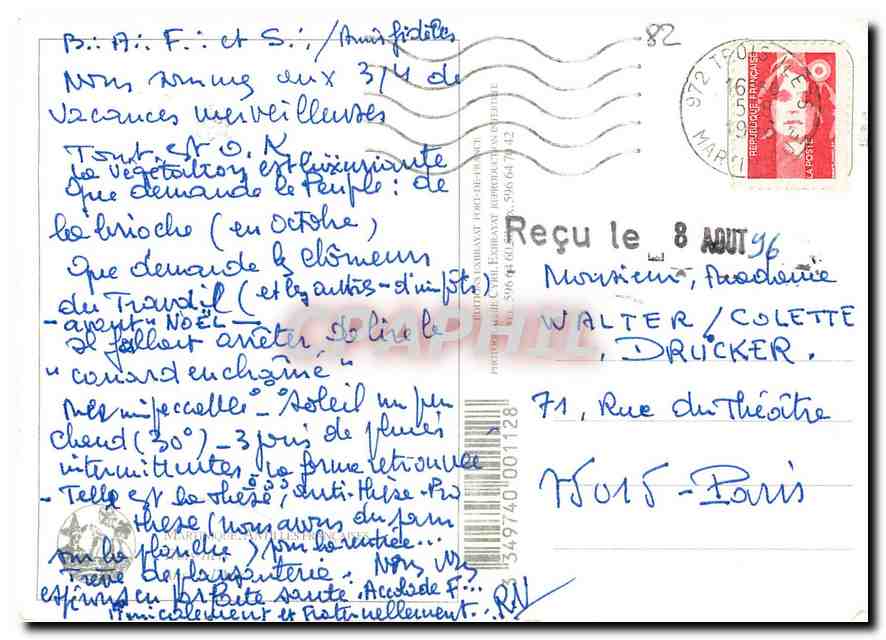 B∴ A∴ F∴ et S∴ / Amis fidèles
Nous sommes aux 3/4 de
vacances merveilleuses
Tout est O.K
la végétation est luxuriante
Que demande le Peuple : de
la brioche (en Octobre)
Que demande les chômeurs
du Travail (et les autres - d'impôts)
- avant " NOËL -
il fallait arrêter de lire le
" canard enchaîné "
Mer impeccable - Soleil un peu
chaud (30°) - 3 jours de pluies
intermittentes - la forme retrouvée
- Telle est la thèse, anti-thèse - Pro
thèse (nous avons du pain
sur la planche) pour la rentrée...
trève de plaisanterie. Nous vous
espérons en parfaite santé. Accolade F...
Amicalement et Fraternellement. RN
82
972 TROIS
16
5
9
MART
RÉPUBLIQUE FRANÇAISE
LA POSTE
Reçu le 8 AOUT 96
Monsieur, Madame
WALTER / COLETTE
DRÜCKER.
71, Rue du Théâtre
75015 - Paris
ÉDITIONS EXBRAYAT FORT-DE-FRANCE
PHOTOGRAPHIE CYRIL EXBRAYAT REPRODUCTION INTERDITE
596 64 60 596 64 70 42
MARTINIQUE ANTILLES FRANÇAISES
3 349740 001128
CPAPHIL